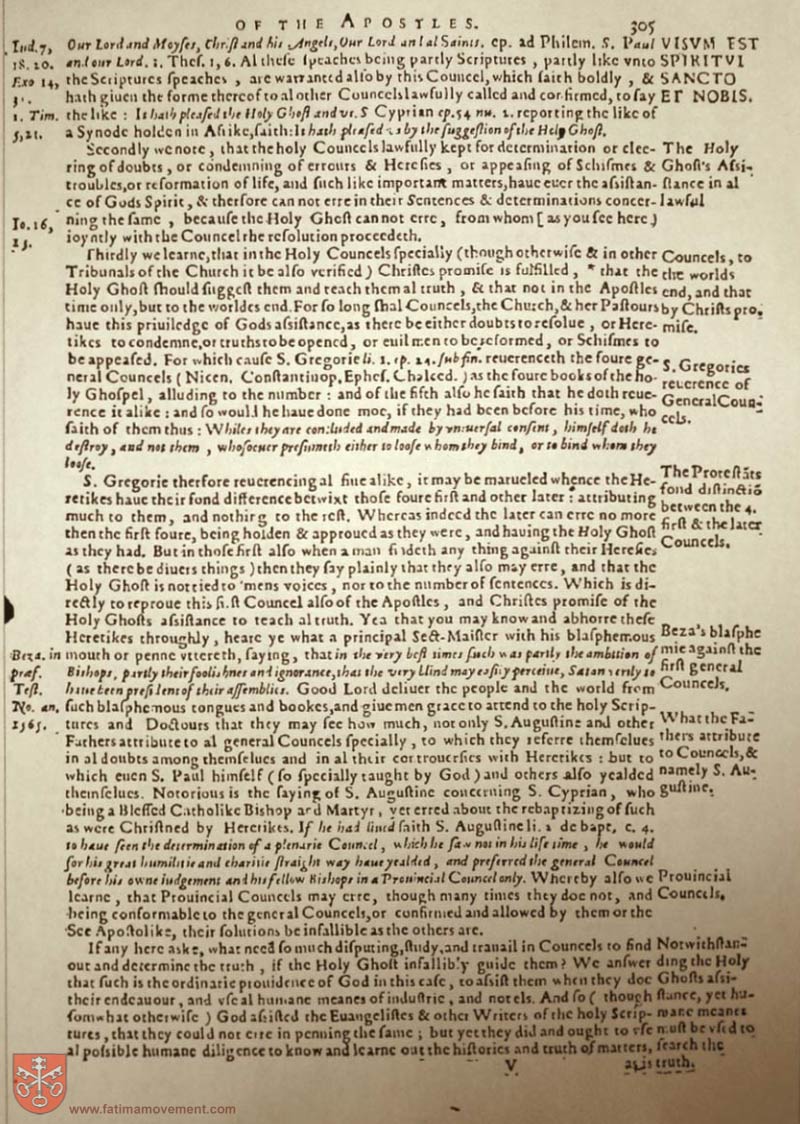 OF THE APOSTLES.
305
Iud. 7,
18. 20.
Exo 14,
31.
1. Tim.
5, 21.
Our Lord and Moyses, Christ and his Angels, Our Lord and al Saints. ep. ad Philem. S. Paul
and our Lord. 1. Thes. 1, 6. Al these speaches being partly Scriptures , partly like vnto
the Scriptures speaches , are warranted also by this Councel, which saith boldly , &
hath giuen the forme thereof to al other Councels lawfully called and confirmed, to say
the like : It hath pleased the Holy Ghost and vs. S Cyprian ep. 54 nu. 2. reporting the like of
a Synode holden in Afrike, saith: It hath pleased vs by the suggestion of the Holy Ghost.
VISVM EST
SPIRITVI
SANCTO
ET NOBIS.
Secondly we note , that the holy Councels lawfully kept for determination or clee-
ring of doubts, or condemning of errours & Heresies , or appeasing of Schismes &
troubles, or reformation of life, and such like important matters, haue euer the assistan-
ce of Gods Spirit, & therfore can not erre in their Sentences & determinations concer-
ning the same , because the Holy Ghost can not erre , from whom [ as you see here )
ioyntly with the Councel the resolution proceedeth.
The Holy
Ghost's Assi-
stance in al
lawful
Io. 16,
13.
Thirdly we learne, that in the Holy Councels specially ( though otherwise & in other
Tribunals of the Church it be also verified ) Christes promise is fulfilled , * that the
Holy Ghost should suggest them and teach them al truth , & that not in the Apostles
time only, but to the worldes end. For so long shal Councels, the Church, & her Pastours
haue this priuiledge of Gods assistance, as there be either doubts to resolue , or Here-
tikes to condemne, or truths to be opened, or euil men to be reformed, or Schismes to
be appeased. For which cause S. Gregorie li. 1. ep. 24. sub fin. reuerenceth the foure ge-
neral Councels ( Nicen. Constantinop. Ephes. Chalced. ) as the foure bookes of the ho-
ly Ghospel, alluding to the number : and of the fifth also he saith that he doth reue-
rence it alike : and so would he haue done moe, if they had been before his time, who
saith of them thus : Whiles they are concluded and made by vniuersal consent, himself doth he
destroy, and not them , whosoeuer presumeth either to loose whom they bind, or to bind whom they
loose.
Councels, to
the worlds
end, and that
by Christs pro-
mise.
S. Gregories
reuerence of
General Coun-
cels.
S. Gregorie therfore reuerencing al fiue alike, it may be marueled whence the He-
retikes haue their fond difference betwixt those foure first and other later : attributing
much to them, and nothing to the rest. Whereas indeed the later can erre no more
then the first foure, being holden & approued as they were, and hauing the Holy Ghost
as they had. But in those first also when a man findeth any thing against their Heresies
( as there be diuers things ) then they say plainly that they also may erre, and that the
Holy Ghost is not tied to mens voices, nor to the number of sentences. Which is di-
rectly to reproue this first Councel also of the Apostles , and Christes promise of the
Holy Ghosts assistance to teach al truth. Yea that you may know and abhorre these
Heretikes throughly, heare ye what a principal Sect-Maister with his blasphemous
mouth or penne vttereth, saying, that in the very best times such was partly the ambition of
Bishops, partly their foolishnes and ignorance, that the very blind may easily perceiue, Satan verily to
haue been president of their assemblies. Good Lord deliuer the people and the world from
such blasphemous tongues and bookes, and giue men grace to attend to the holy Scrip-
tures and Doctours that they may see how much, not only S. Augustine and other
Fathers attribute to al general Councels specially , to which they referre themselues
in al doubts among themselues and in al their controuersies with Heretikes : but to
which euen S. Paul himself ( so specially taught by God ) and others also yealded
themselues. Notorious is the saying of S. Augustine concerning S. Cyprian, who
being a Blessed Catholike Bishop and Martyr, yet erred about the rebaptizing of such
as were Christned by Heretikes. If he had liued saith S. Augustine li. 2 de bapt. c. 4.
to haue seen the determination of a plenarie Councel , which he saw not in his life time , he would
for his great humilitie and charitie straight way haue yealded, and preferred the general Councel
before his owne iudgement and his fellow Bishops in a Prouincial Councel only. Whereby also we
learne , that Prouincial Councels may erre, though many times they doe not, and
being conformable to the general Councels, or confirmed and allowed by them or the
See Apostolike, their solutions be infallible as the others are.
The Protestãts
fond distinctiõ
between the 4.
first & the later
Councels.
Beza. in
præf.
Test.
No. an.
1565.
Beza's blasphe
mie against the
first general
Councels.
What the Fa-
thers attribute
to Councels, &
namely S. Au-
gustine.
Prouincial
Councels.
If any here aske, what need so much disputing, study, and trauail in Councels to find
out and determine the truth , if the Holy Ghost infallibly guide them? We answer
that such is the ordinarie prouidence of God in this case, to assist them when they doe
their endeauour, and vse al humane meanes of industrie, and not els. And so ( though
somwhat otherwise ) God assisted the Euangelistes & other Writers of the holy Scrip-
tures, that they could not erre in penning the same ; but yet they did and ought to vse
al possible humane diligence to know and learne out the histories and truth of matters,
Notwithstan-
ding the Holy
Ghosts assi-
stance, yet hu-
mane meanes
must be vsed to
search the
truth.
V
www.fatimamovement.com